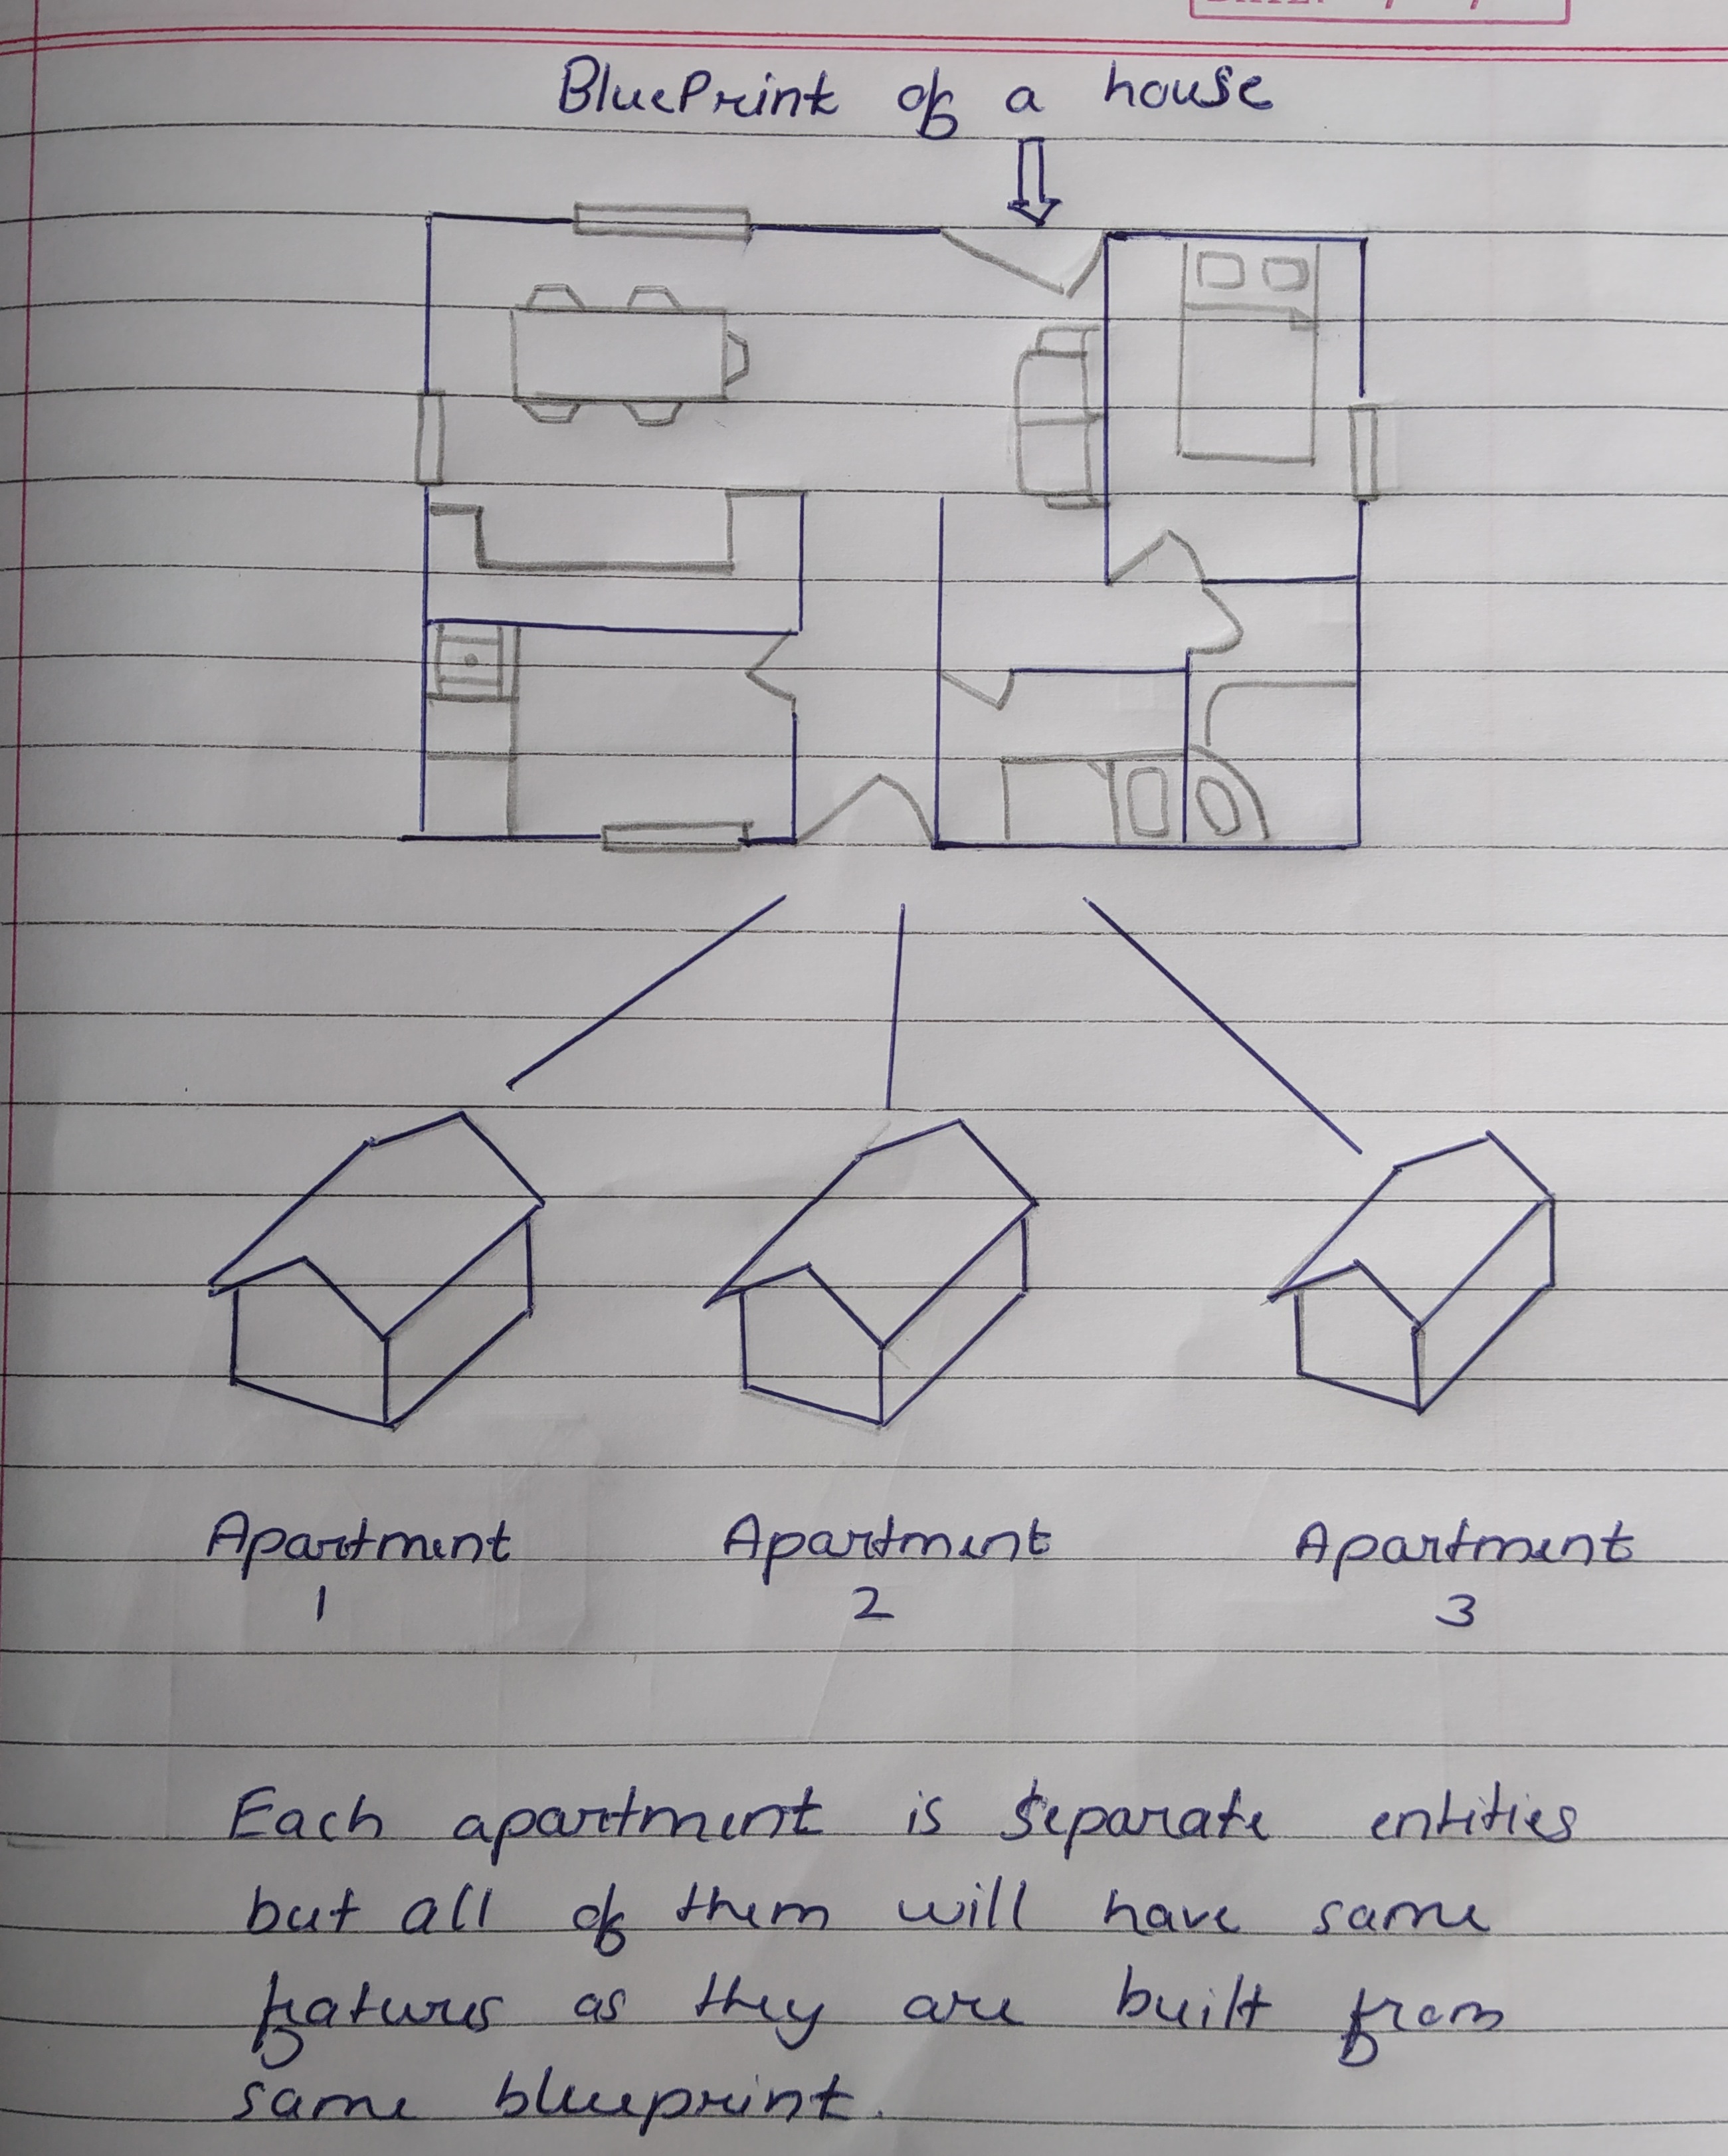 BluePrint of a house
Apartment Apartment Apartment
1 2 3
Each apartment is separate entities
but all of them will have same
features as they are built from
same blueprint.